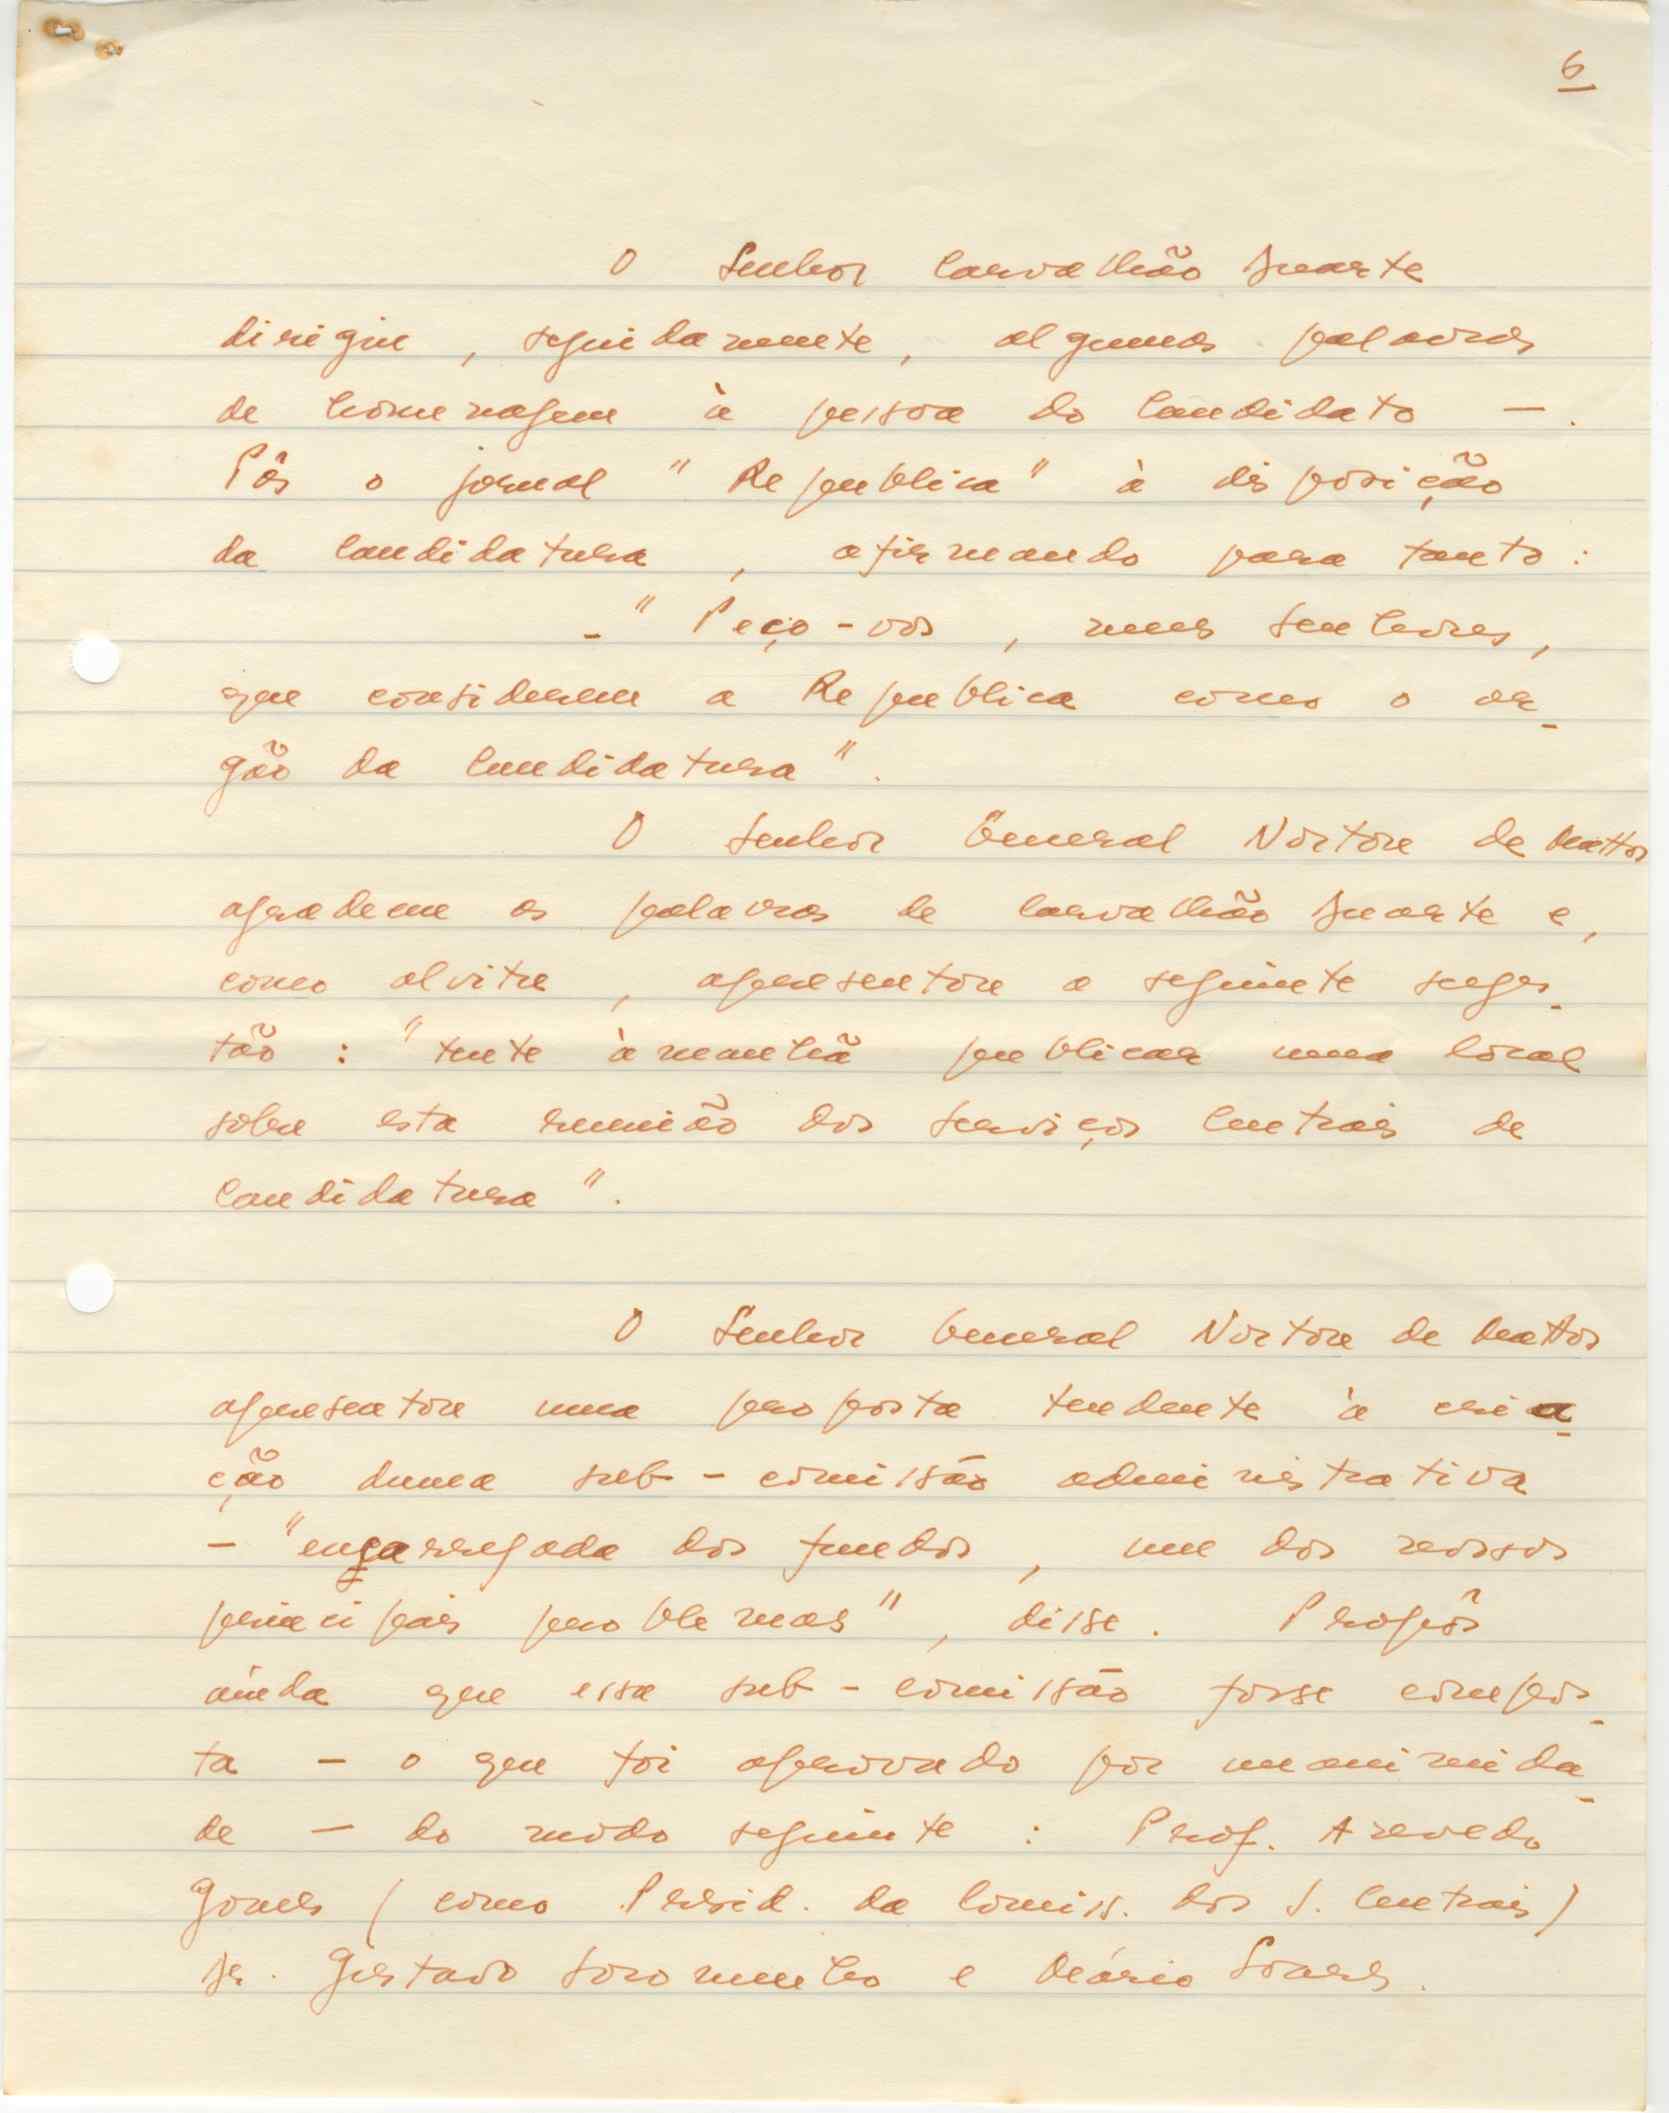 6
O Senhor Carvalhão Duarte
dirigiu, seguidamente, algumas palavras
de homenagem à pessoa do Candidato —.
Pôs o jornal "Republica" à disposição
da Candidatura, afirmando para tanto:
-"Peço-vos, meus Senhores,
que considerem a Republica como o or-
gão da Candidatura".
O Senhor General Norton de Mattos
agradeceu as palavras de Carvalhão Duarte e,
como alvitre, apresentou a seguinte suges-
tão: "tente àmanhã publicar uma local
sobre esta reunião dos Serviços Centrais de
Candidatura".
O Senhor General Norton de Mattos
apresentou uma proposta tendente à cria-
ção duma sub-comissão administrativa
- "encarregada dos fundos, um dos nossos
principais problemas", disse. Propôs
ainda que essa sub-comissão fosse compos-
ta — o que foi aprovado por unanimida-
de — do modo seguinte: Prof. Azevedo
Gomes (como Presid. da Comiss. dos S. Centrais)
Dr. Gustavo Soromenho e Mário Soares.